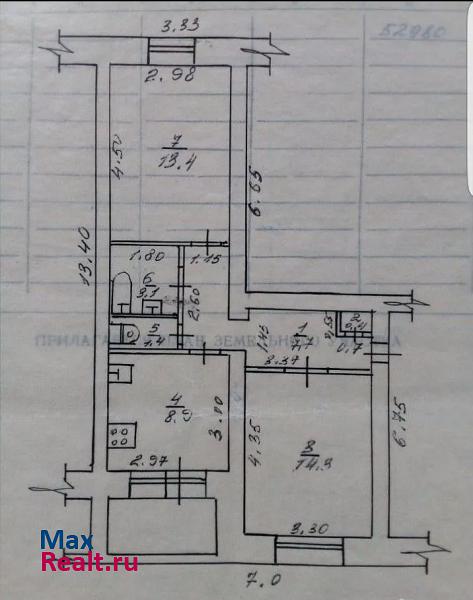 52980
3.33
2.98
4.50
7
13.4
6.65
13.40
1.80
1.15
6
3.1
2.60
5
1.4
1.45
1
7.7
3.37
2
0.4
0.55
0.7
ПРИЛАГАЕ
ПЛАН ЗЕМЕЛЬНОГО
4
8.9
3.00
2.97
4.35
3
14.3
6.75
3.30
7.0
Max
Realt.ru